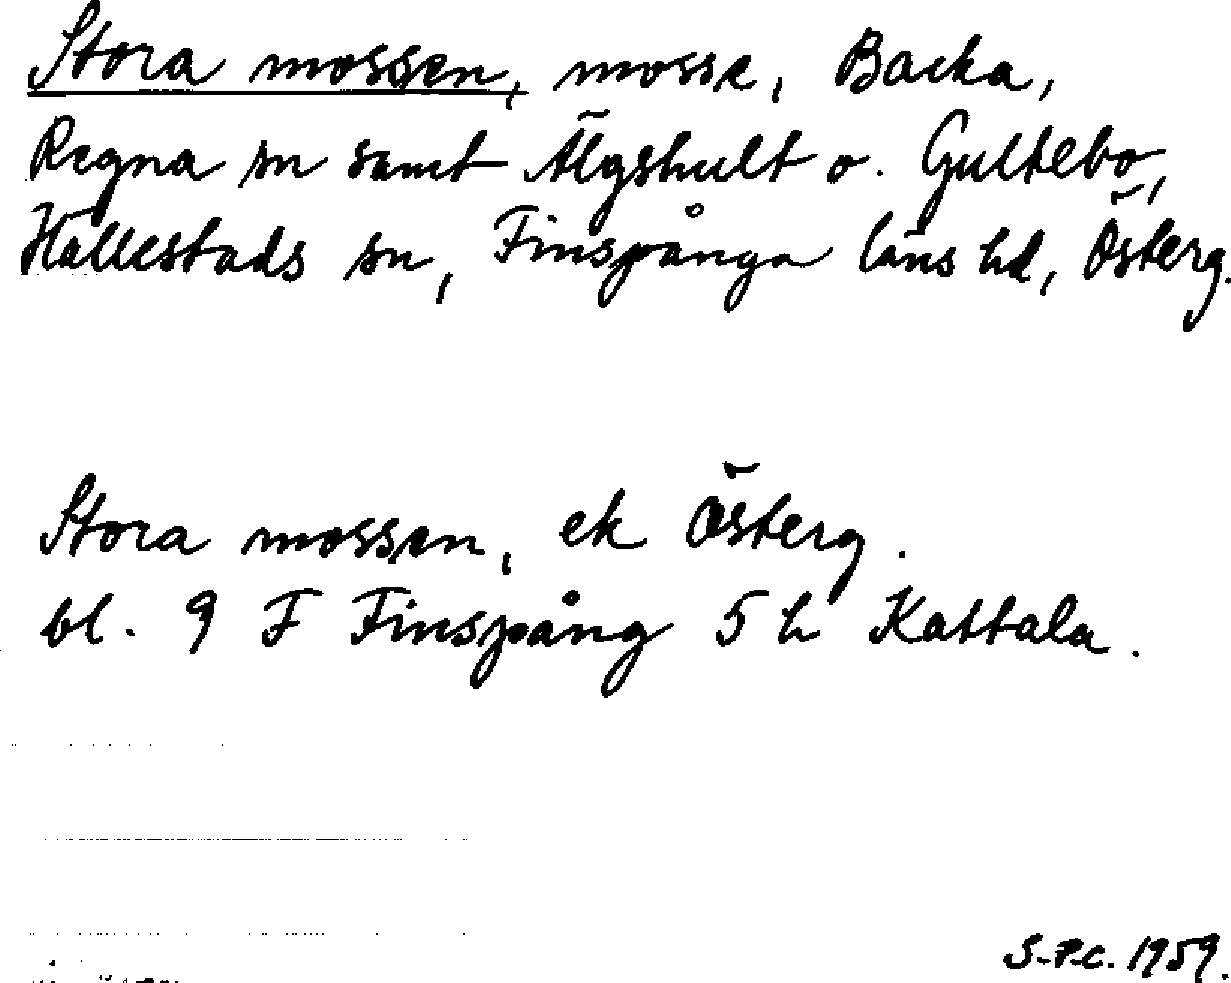 Stora mossen, mosse, Backa,
Regna sn samt Älgshult o. Gultebo,
Hällestads sn, Finspånga läns hd, Österg.
Stora mossen, ek Österg.
bl. 9 F Finspång 5 h Kattala.
S-P.C. 1959.